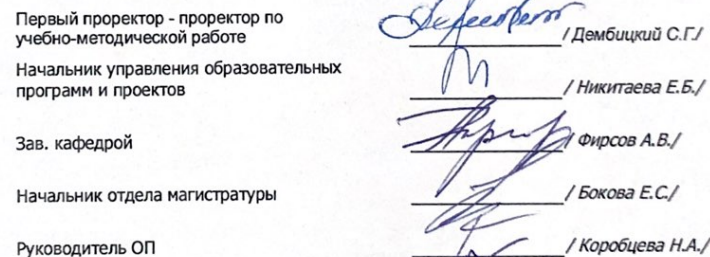 Первый проректор - проректор по
учебно-методической работе / Дембицкий С.Г./
Начальник управления образовательных
программ и проектов / Никитаева Е.Б./
Зав. кафедрой / Фирсов А.В./
Начальник отдела магистратуры / Бокова Е.С./
Руководитель ОП / Коробцева Н.А./